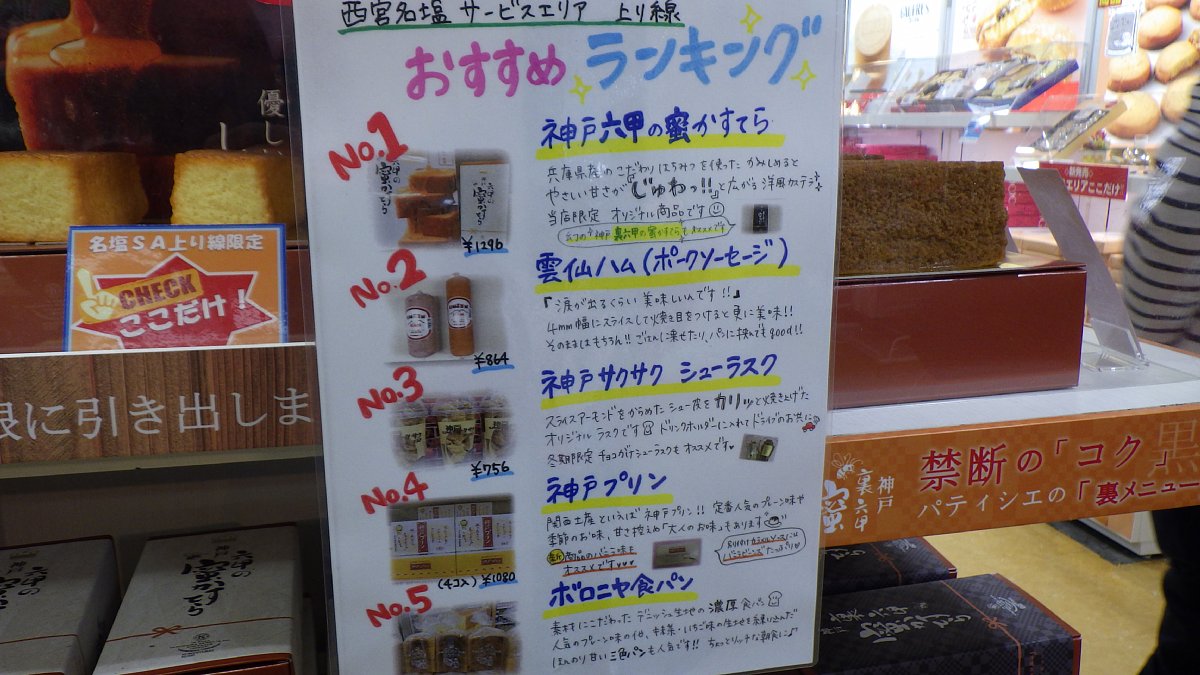 西宮名塩 サービスエリア 上り線
おすすめ ランキング
No.1
神戸六甲の蜜かすてら
兵庫県産のこだわりはちみつを使った かみしめると
やさしい甘さが「じゅわっ!!」と広がる 洋風カステラ
当店限定 オリジナル商品です
幻の神戸裏六甲の蜜かすてらもオススメです
¥1296
No.2
雲仙ハム(ポークソーセージ)
「涙が出るくらい 美味しいんです!!」
4mm幅にスライスして焼き目をつけると更に美味!!
そのままはもちろん!! ごはんに乗せたり、パンに挟んでもgood!!
¥864
No.3
神戸サクサク シューラスク
スライスアーモンドをからめたシュー皮をカリッと焼き上げた
オリジナルラスクです ドリンクホルダーに入れてドライブのお供に
冬期限定 チョコがけシューラスクもオススメです
¥756
No.4
神戸プリン
関西土産といえば神戸プリン!! 定番人気のプレーン味や
季節のお味、甘さ控えめ「大人のお味」もあります
新商品のバニラ味も
オススメです
(4コ入) ¥1080
No.5
ボロニヤ食パン
素材にこだわった デニッシュ生地の濃厚食パン
人気のプレーン味の他、抹茶・いちご味の生地を練り込んだ
ほんのり甘い三色パンも人気です!! ちょっとリッチな朝食に♪
優し
名塩SA上り線限定
CHECK
ここだけ!
限に引き出しま
エリアここだけ!!
神戸
裏六甲
蜜
禁断の「コク」
黒
パティシエの「裏メニュー